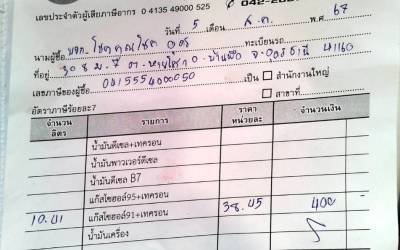 042-20
เลขประจำตัวผู้เสียภาษีอากร 0 4135 49000 525
วันที่ 5 เดือน ส.ค. พ.ศ. 67
นามผู้ซื้อ หจก. โชคคูณโชค อุดร ทะเบียนรถ
ที่อยู่ 30 ม. 7 ต. หายโศก อ. บ้านผือ จ. อุดรธานี 41160
เลขภาษีของผู้ซื้อ 0415554000050 เป็น สำนักงานใหญ่
อัตราภาษีร้อยละ7 สาขาที่
จำนวน ลิตร รายการ ราคา หน่วยละ จำนวนเงิน
น้ำมันดีเซล+เทครอน
น้ำมันพาวเวอร์ดีเซล
น้ำมันดีเซล B7
แก๊สโซฮอล์95+เทครอน
10.41 แก๊สโซฮอล์91+เทครอน 38.45 400
น้ำมันเครื่อง